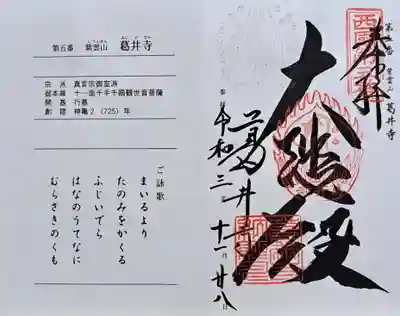 第五番 紫雲山 葛井寺
しうんざん ふじいでら
宗 派 真言宗御室派
御本尊 十一面千手千眼観世音菩薩
開 基 行基
創 建 神亀2(725)年
ご詠歌
まいるより
たのみをかくる
ふじいでら
はなのうてなに
むらさきのくも
奉拝
第五番 紫雲山 葛井寺
大悲殿
葛井寺
令和 三 年 十一 月 廿八 日